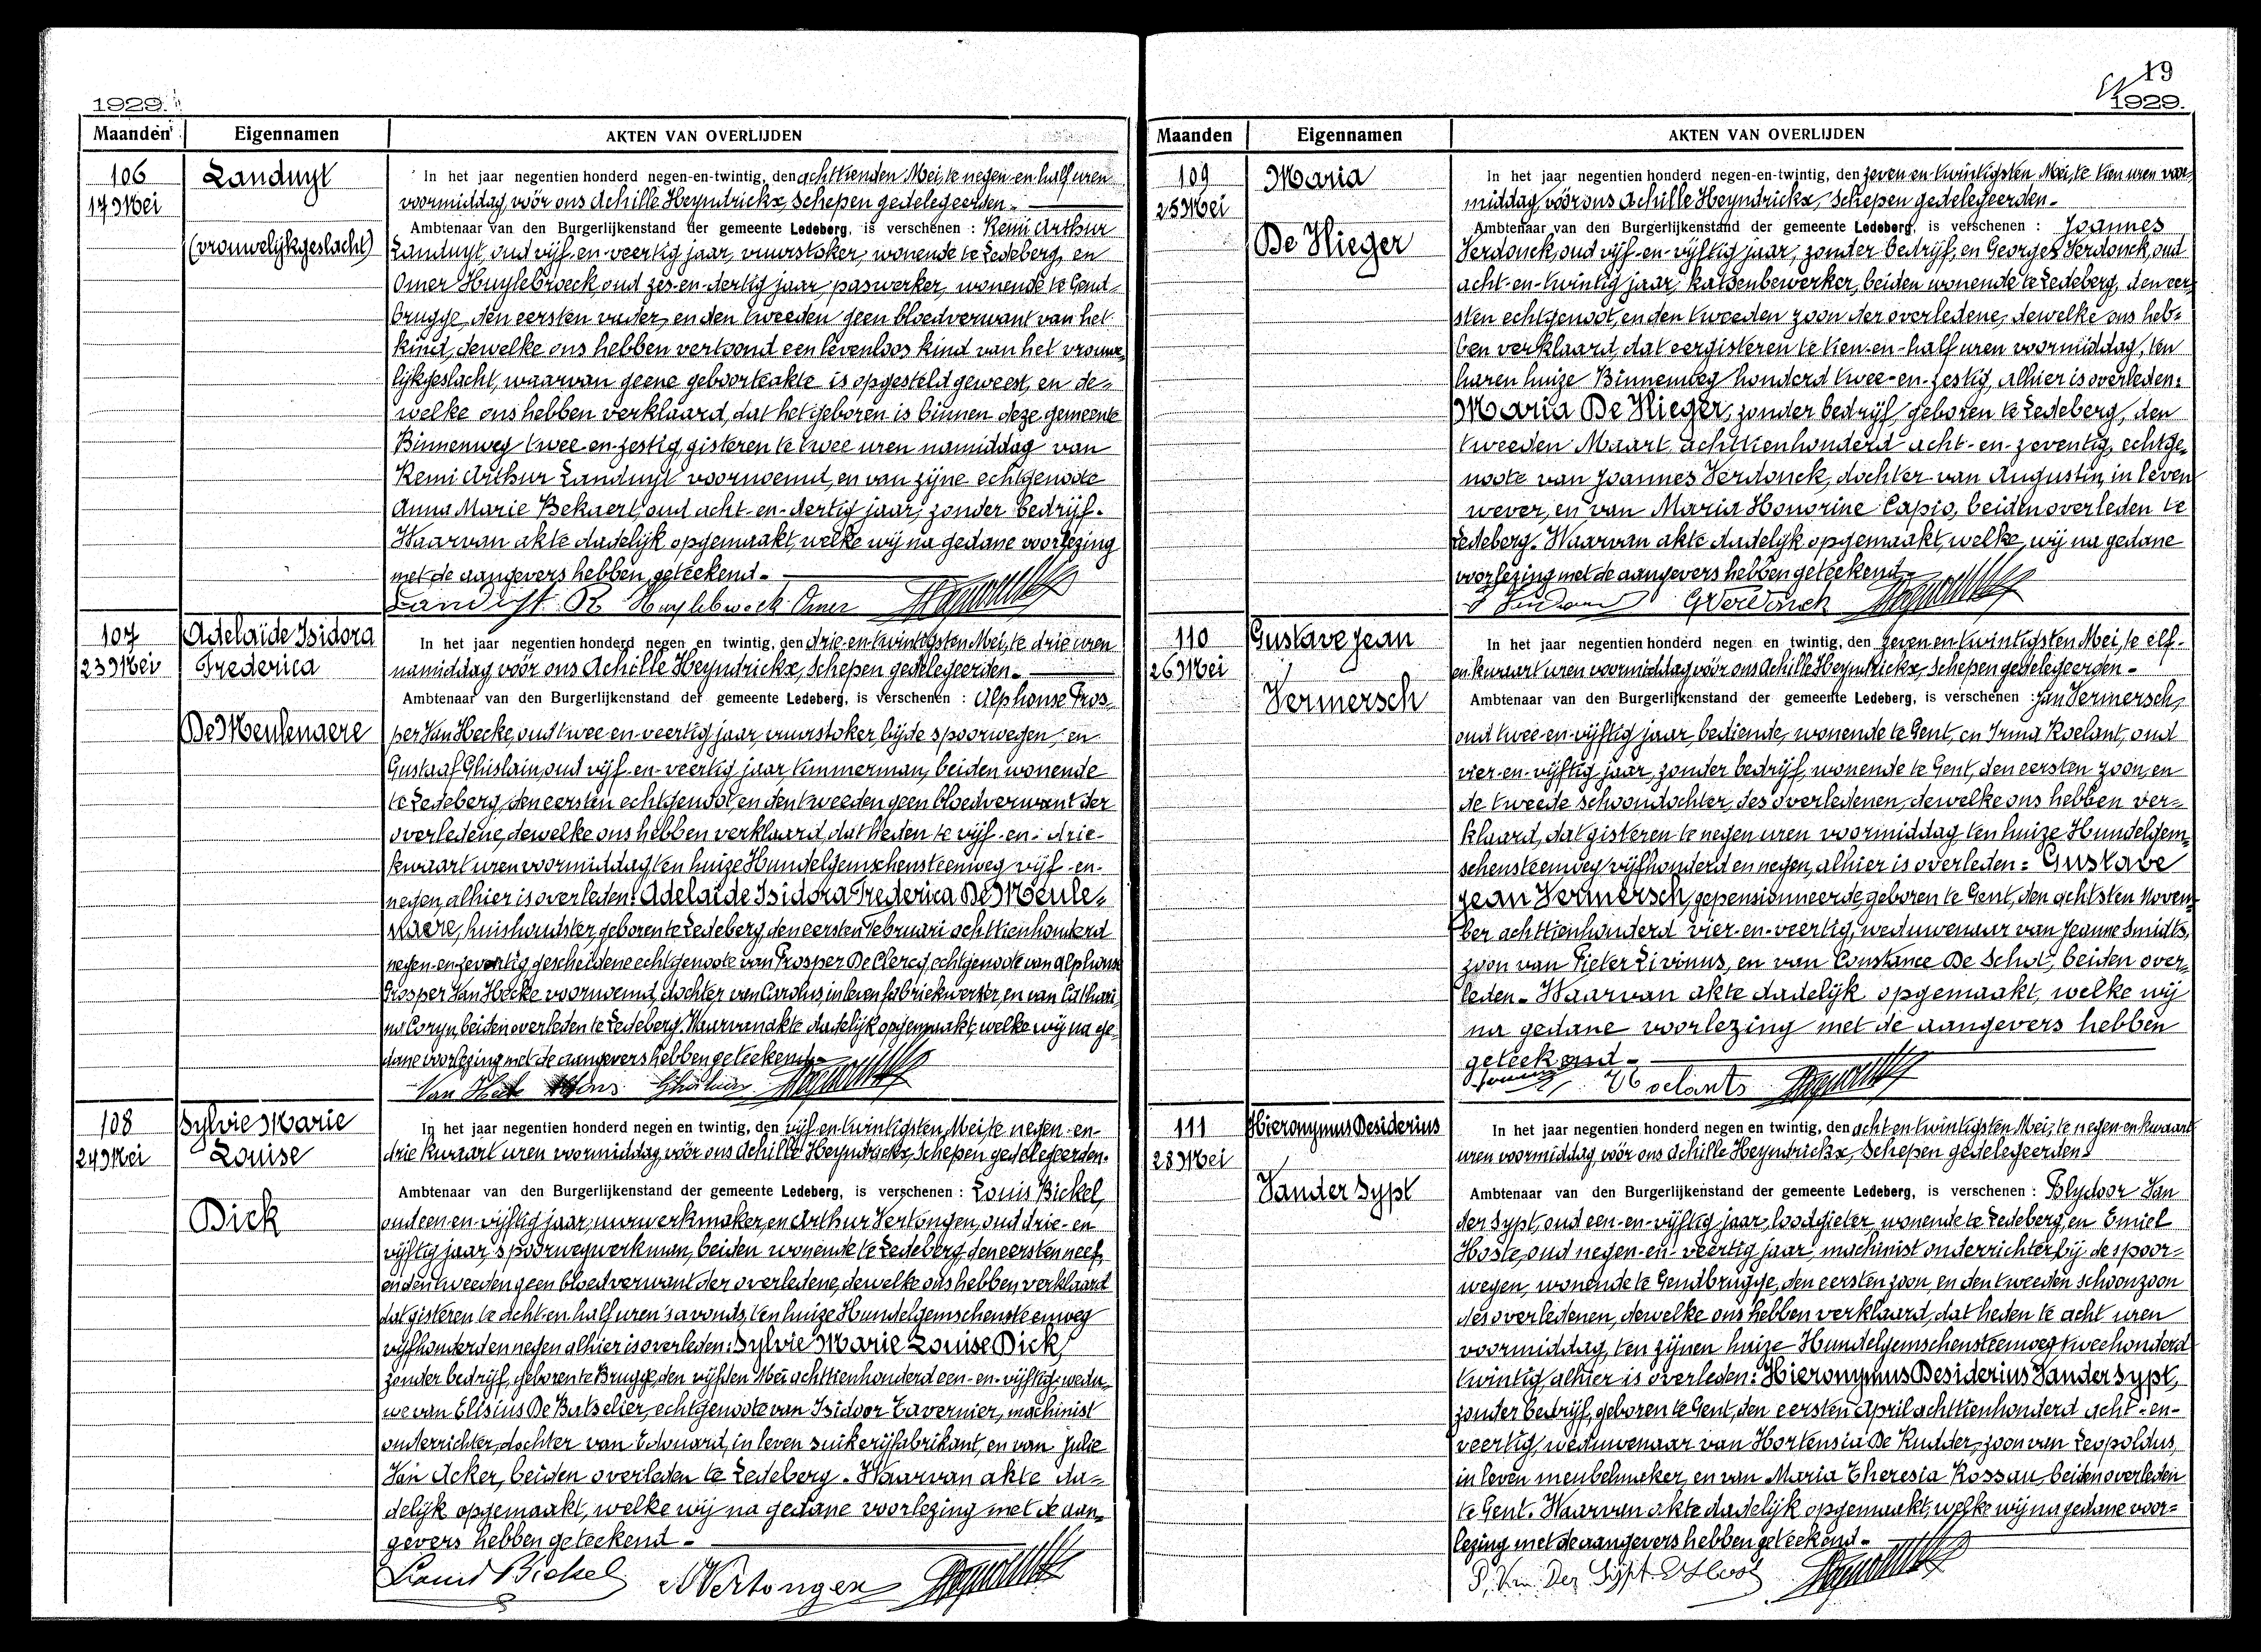 1929.
Maanden Eigennamen AKTEN VAN OVERLIJDEN
106
17 Mei
Landuyt
(vrouwelijkgeslacht)
In het jaar negentien honderd negen-en-twintig, den achttienden Mei, te negen-en-half uren
voormiddag, vóór ons Achille Heyndrickx, Schepen gedelegeerden.
Ambtenaar van den Burgerlijkenstand der gemeente Ledeberg, is verschenen : Remi Arthur
Landuyt, oud vijf-en-veertig jaar, vuurstoker, wonende te Ledeberg, en
Omer Huylebroeck, oud zes-en-dertig jaar, paswerker, wonende te Gend-
brugge, den eersten vader, en den tweeden geen bloedverwant van het
kind, dewelke ons hebben vertoond een levenloos kind van het vrouwe-
lijkgeslacht, waarvan geene geboorteakte is opgesteld geweest, en de-
welke ons hebben verklaard, dat het geboren is binnen deze gemeente
Binnenweg twee-en-zestig, gisteren te twee uren namiddag van
Remi Arthur Landuyt voornoemd, en van zijne echtgenoote
Anna Marie Bekaert, oud acht-en-dertig jaar, zonder bedrijf.
Waarvan akte dadelijk opgemaakt, welke wij na gedane voorlezing
met de aangevers hebben geteekend.
Landuyt R Huylebroeck Omer
107
23 Mei
Adelaïde Isidora
Frederica
De Meulenaere
In het jaar negentien honderd negen en twintig, den drie-en-twintigsten Mei, te drie uren
namiddag, vóór ons Achille Heyndrickx, Schepen gedelegeerden.
Ambtenaar van den Burgerlijkenstand der gemeente Ledeberg, is verschenen : Alphonse Pros-
per Van Hecke, oud twee-en-veertig jaar, vuurstoker bij de spoorwegen, en
Gustaaf Ghislain, oud vijf-en-veertig jaar, timmerman, beiden wonende
te Ledeberg, den eersten echtgenoot, en den tweeden geen bloedverwant der
overledene, dewelke ons hebben verklaard, dat heden te vijf-en-drie-
kwaart uren voormiddag, ten huize Hundelgemschensteenweg vijf-en-
negen, alhier is overleden: Adelaïde Isidora Frederica De Meule-
naere, huishoudster, geboren te Ledeberg, den eersten Februari achttienhonderd
negen-en-zeventig, gescheidene echtgenoote van Prosper De Clercq, echtgenoote van Alphonse
Prosper Van Hecke voornoemd, dochter van Carolus, in leven fabriekwerker, en van Cathari-
na Coryn, beiden overleden te Ledeberg. Waarvan akte dadelijk opgemaakt, welke wij na ge-
dane voorlezing met de aangevers hebben geteekend.
Van Hecke Alfons Ghislain
108
24 Mei
Sylvie Marie
Louise
Dick
In het jaar negentien honderd negen en twintig, den vijf-en-twintigsten Mei, te negen-en-
drie kwaart uren voormiddag, vóór ons Achille Heyndrickx, Schepen gedelegeerden.
Ambtenaar van den Burgerlijkenstand der gemeente Ledeberg, is verschenen : Louis Bickel,
oud een-en-vijftig jaar, uurwerkmaker, en Arthur Vertongen, oud drie-en-
vijftig jaar, spoorwegwerkman, beiden wonende te Ledeberg, den eersten neef,
en den tweeden geen bloedverwant der overledene, dewelke ons hebben verklaard
dat gisteren te acht-en-half uren 's avonds, ten huize Hundelgemschensteenweg
vijfhonderd en negen alhier is overleden: Sylvie Marie Louise Dick,
zonder bedrijf, geboren te Brugge, den vijfden Mei achttienhonderd een-en-vijftig, wedu-
we van Elisius De Batselier, echtgenoote van Isidoor Tavernier, machinist
onderrichter, dochter van Edouard, in leven suikerijfabrikant, en van Julie
Van Acker, beiden overleden te Ledeberg. Waarvan akte da-
delijk opgemaakt, welke wij na gedane voorlezing met de aan-
gevers hebben geteekend.
Louis Bickel A Vertongen
19
1929.
Maanden Eigennamen AKTEN VAN OVERLIJDEN
109
25 Mei
Maria
De Vlieger
In het jaar negentien honderd negen-en-twintig, den zeven-en-twintigsten Mei, te tien uren voor-
middag, vóór ons Achille Heyndrickx, Schepen gedelegeerden.
Ambtenaar van den Burgerlijkenstand der gemeente Ledeberg, is verschenen : Joannes
Verdonck, oud vijf-en-vijftig jaar, zonder bedrijf, en Georges Verdonck, oud
acht-en-twintig jaar, katoenbewerker, beiden wonende te Ledeberg, den eer-
sten echtgenoot, en den tweeden zoon der overledene, dewelke ons heb-
ben verklaard, dat eergisteren te tien-en-half uren voormiddag, ten
haren huize Binnenweg honderd twee-en-zestig, alhier is overleden:
Maria De Vlieger, zonder bedrijf, geboren te Ledeberg, den
tweeden Maart achttienhonderd acht-en-zeventig, echtge-
noote van Joannes Verdonck, dochter van Augustin, in leven
wever, en van Maria Honorine Capio, beiden overleden te
Ledeberg. Waarvan akte dadelijk opgemaakt, welke wij na gedane
voorlezing met de aangevers hebben geteekend.
G Verdonck
110
26 Mei
Gustave Jean
Vermersch
In het jaar negentien honderd negen en twintig, den zeven-en-twintigsten Mei, te elf-
en-kwaart uren voormiddag vóór ons Achille Heyndrickx, Schepen gedelegeerden.
Ambtenaar van den Burgerlijkenstand der gemeente Ledeberg, is verschenen : Jan Vermersch,
oud twee-en-vijftig jaar, bediende, wonende te Gent, en Irma Roelant, oud
vier-en-vijftig jaar, zonder bedrijf, wonende te Gent, den eersten zoon, en
de tweede schoondochter, des overledenen, dewelke ons hebben ver-
klaard, dat gisteren te negen uren voormiddag ten huize Hundelgem-
schensteenweg vijfhonderd en negen, alhier is overleden: Gustave
Jean Vermersch, gepensionneerde, geboren te Gent, den achtsten Novem-
ber achttienhonderd vier-en-veertig, weduwenaar van Jeanne Smidts,
zoon van Pieter Livinus, en van Constance De Schot, beiden over-
leden. Waarvan akte dadelijk opgemaakt, welke wij
na gedane voorlezing met de aangevers hebben
geteekend.
Roelants
111
28 Mei
Hieronymus Desiderius
Vander Sypt
In het jaar negentien honderd negen en twintig, den acht-en-twintigsten Mei, te negen-en-kwaart
uren voormiddag, vóór ons Achille Heyndrickx, Schepen gedelegeerden.
Ambtenaar van den Burgerlijkenstand der gemeente Ledeberg, is verschenen : Polydoor Van
der Sypt, oud een-en-vijftig jaar, loodgieter, wonende te Ledeberg, en Emiel
Hoste, oud negen-en-veertig jaar, machinist onderrichter bij de spoor-
wegen, wonende te Gendbrugge, den eersten zoon, en den tweeden schoonzoon
des overledenen, dewelke ons hebben verklaard, dat heden te acht uren
voormiddag, ten zijnen huize Hundelgemschensteenweg tweehonderd
twintig, alhier is overleden: Hieronymus Desiderius Vander Sypt,
zonder bedrijf, geboren te Gent, den eersten April achttienhonderd acht-en-
veertig, weduwenaar van Hortensia De Rudder, zoon van Leopoldus,
in leven meubelmaker, en van Maria Theresia Rossau, beiden overleden
te Gent. Waarvan akte dadelijk opgemaakt, welke wij na gedane voor-
lezing met de aangevers hebben geteekend.
P. Van Der Sypt E Hoste